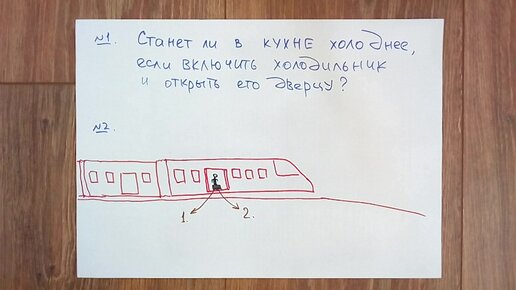 №1. Станет ли в кухне холоднее,
если включить холодильник
и открыть его дверцу?
№2.
1. 2.